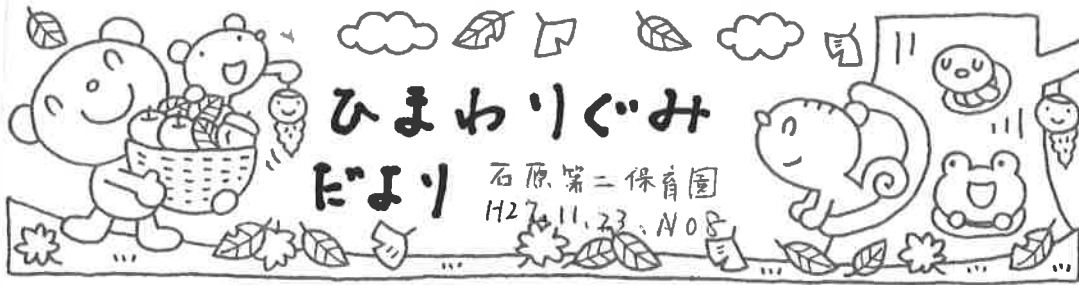 ひまわりぐみ
だより
石原第二保育園
H27.11.23. NO8